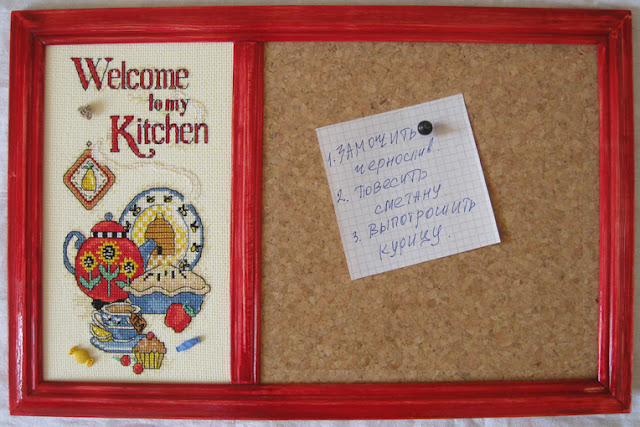 Welcome
to my
Kitchen
1. ЗАМОЧИТЬ
чернослив.
2. ПОВЕСИТЬ
сметану
3. ВЫПОТРОШИТЬ
КУРИЦУ.